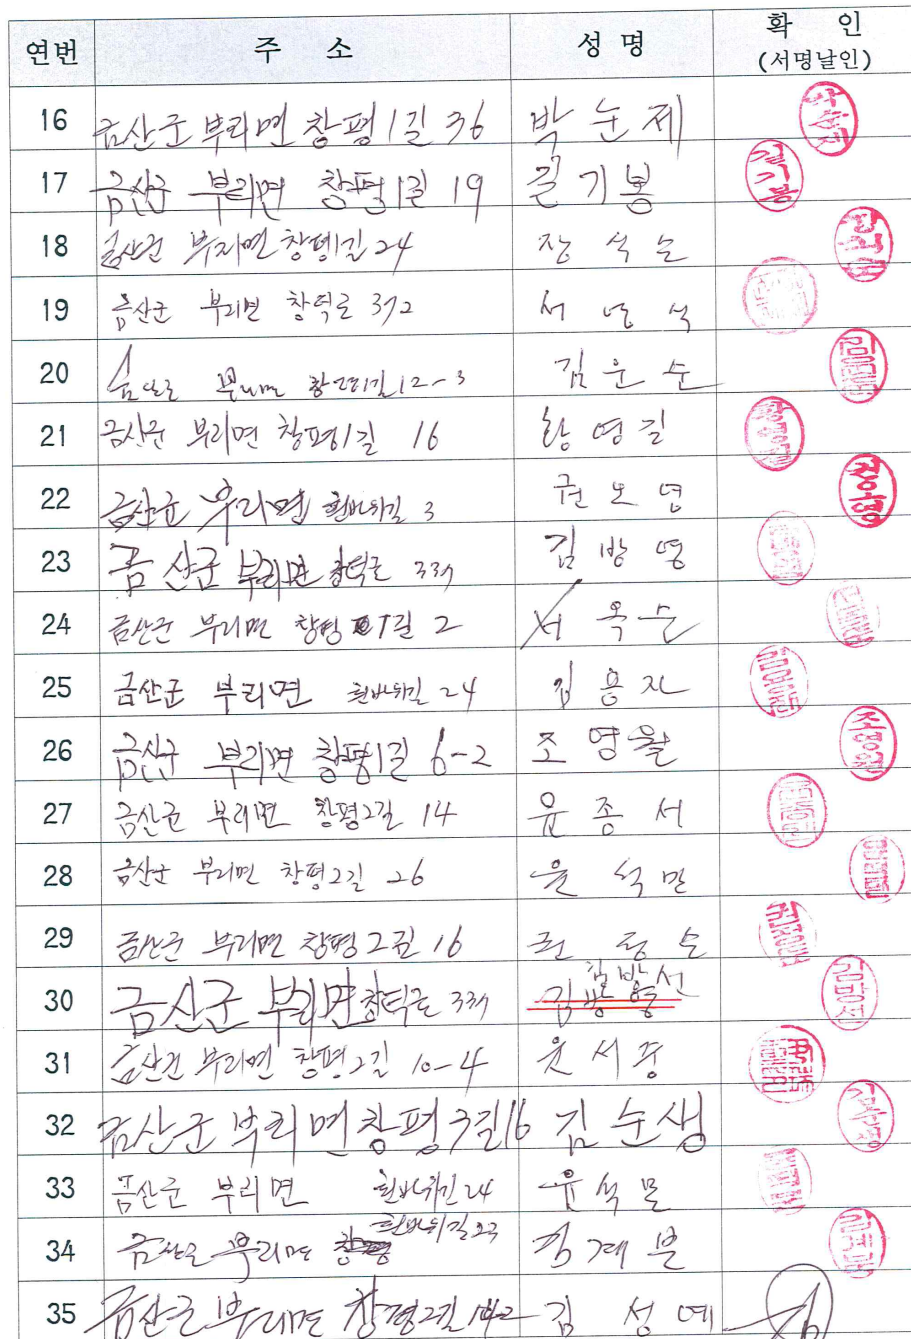 연번 주 소 성 명 확 인
(서명날인)
16 금산군 부리면 창평1길 36 박 눈 제
17 금산군 부리면 창평1길 19 길기봉
18 금산군 부리면 창평1길 24 장 석 순
19 금산군 부리면 창덕로 372 서 석
20 12-3 김 운 순
21 금산군 부리면 창평1길 16 황영길
22 금산군 부리면 흰바위길 3 권오영
23 금산군 부리면 창덕로 337 김방영
24 금산군 부리면 창평1길 2 서옥순
25 금산군 부리면 흰바위길 24 김용진
26 금산군 부리면 창평1길 6-2 조영월
27 금산군 부리면 창평2길 14 윤종서
28 금산군 부리면 창평2길 26 윤석만
29 금산군 부리면 창평2길 16
30 금산군 부리면 창덕로 337
31 금산군 부리면 창평2길 10-4 윤서중
32 금산군 부리면 창평3길16 김순생
33 금산군 부리면 흰바위길 24 윤석문
34 금산군 부리면 흰바위길 계분
35 금산군 부리면 창평2길 김성예